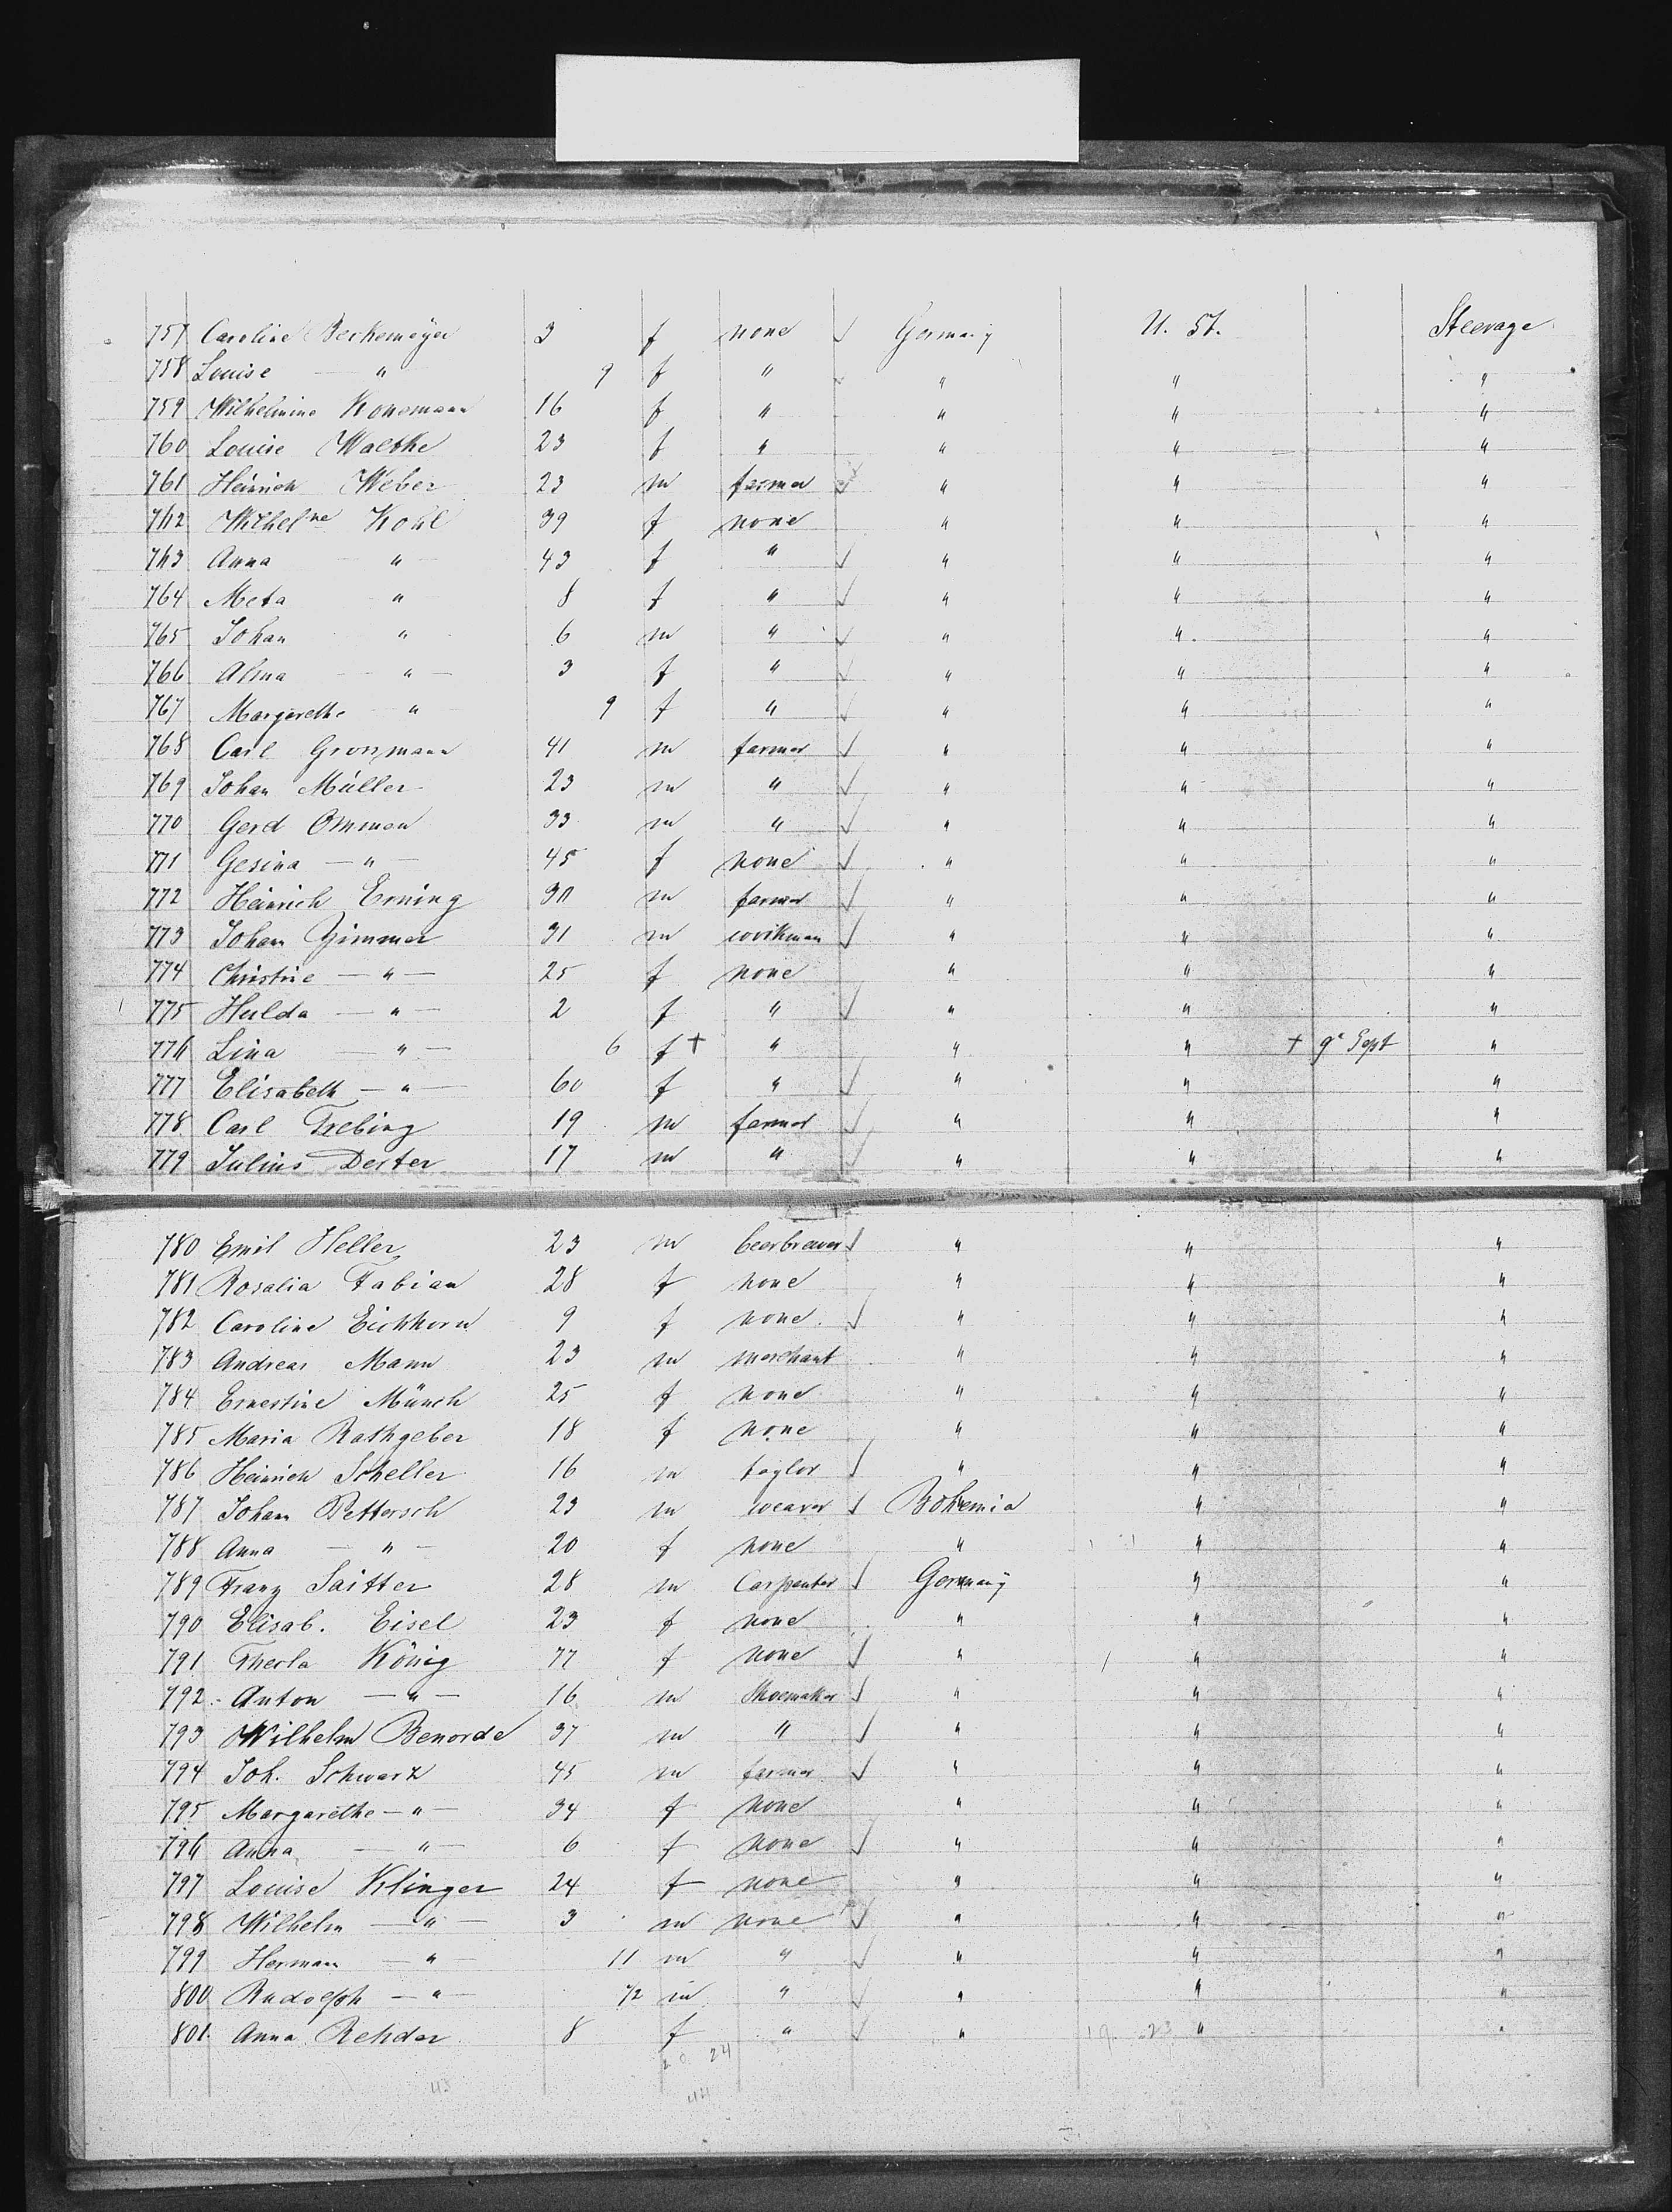 757 Caroline Beckemeyer 3 f none √ Germany U. St. Steerage
758 Louise " 9 f " " " "
759 Wilhelmine Konemann 16 f " " " "
760 Louise Walthe 23 f " " " "
761 Heinrich Weber 23 m farmer √ " " "
762 Wilhelne Kohl 39 f none " " "
763 Anna " 43 f " √ " " "
764 Meta " 8 f " √ " " "
765 Johan " 6 m " √ " " "
766 Alma " 3 f " √ " " "
767 Margarethe " 9 f " √ " " "
768 Carl Grossmann 41 m farmer √ " " "
769 Johan Müller 23 m " √ " " "
770 Gerd Ommen 33 m " √ " " "
771 Gesina — " — 45 f none √ " " "
772 Heinrich Erning 30 m farmer √ " " "
773 Johann Zimmer 31 m workman √ " " "
774 Christine — " — 25 f none " " "
775 Hulda — " — 2 f " √ " " "
776 Lina — " — 6 f + " " " + 9t Sept "
777 Elisabeth — " — 60 f " √ " " "
778 Carl Trebing 19 m farmer √ " " "
779 Julius Dexter 17 m " √ " " "
780 Emil Heller 23 m beerbrewer √ " " "
781 Rosalia Fabian 28 f none " " "
782 Caroline Eichhorn 9 f none. √ " " "
783 Andreas Mann 23 m merchant " " "
784 Ernestine Münch 25 f none " " "
785 Maria Rathgeber 18 f none " " "
786 Heinrich Scheller 16 m taylor √ " " "
787 Johann Pettersch 23 m weaver √ Bohemia " "
788 Anna — " — 20 f none " " "
789 Franz Saitter 28 m Carpenter √ Germany " "
790 Elisab. Eisel 23 f none " " "
791 Thecla König 77 f none √ " " "
792 Anton — " — 16 m Shoemaker √ " " "
793 Wilhelm Benorde 37 m " √ " " "
794 Joh. Schwarz 45 m farmer √ " " "
795 Margarethe — " — 34 f none " " "
796 Anna — " — 6 f none √ " " "
797 Louise Klinger 24 f none " " "
798 Wilhelm — " — 3 m none √ " " "
799 Herman — " 11 m " √ " " "
800 Rudolph — " — 1/2 m " √ " " "
801 Anna Rehder 8 f " √ " 19 23 " "
20 24
43 44